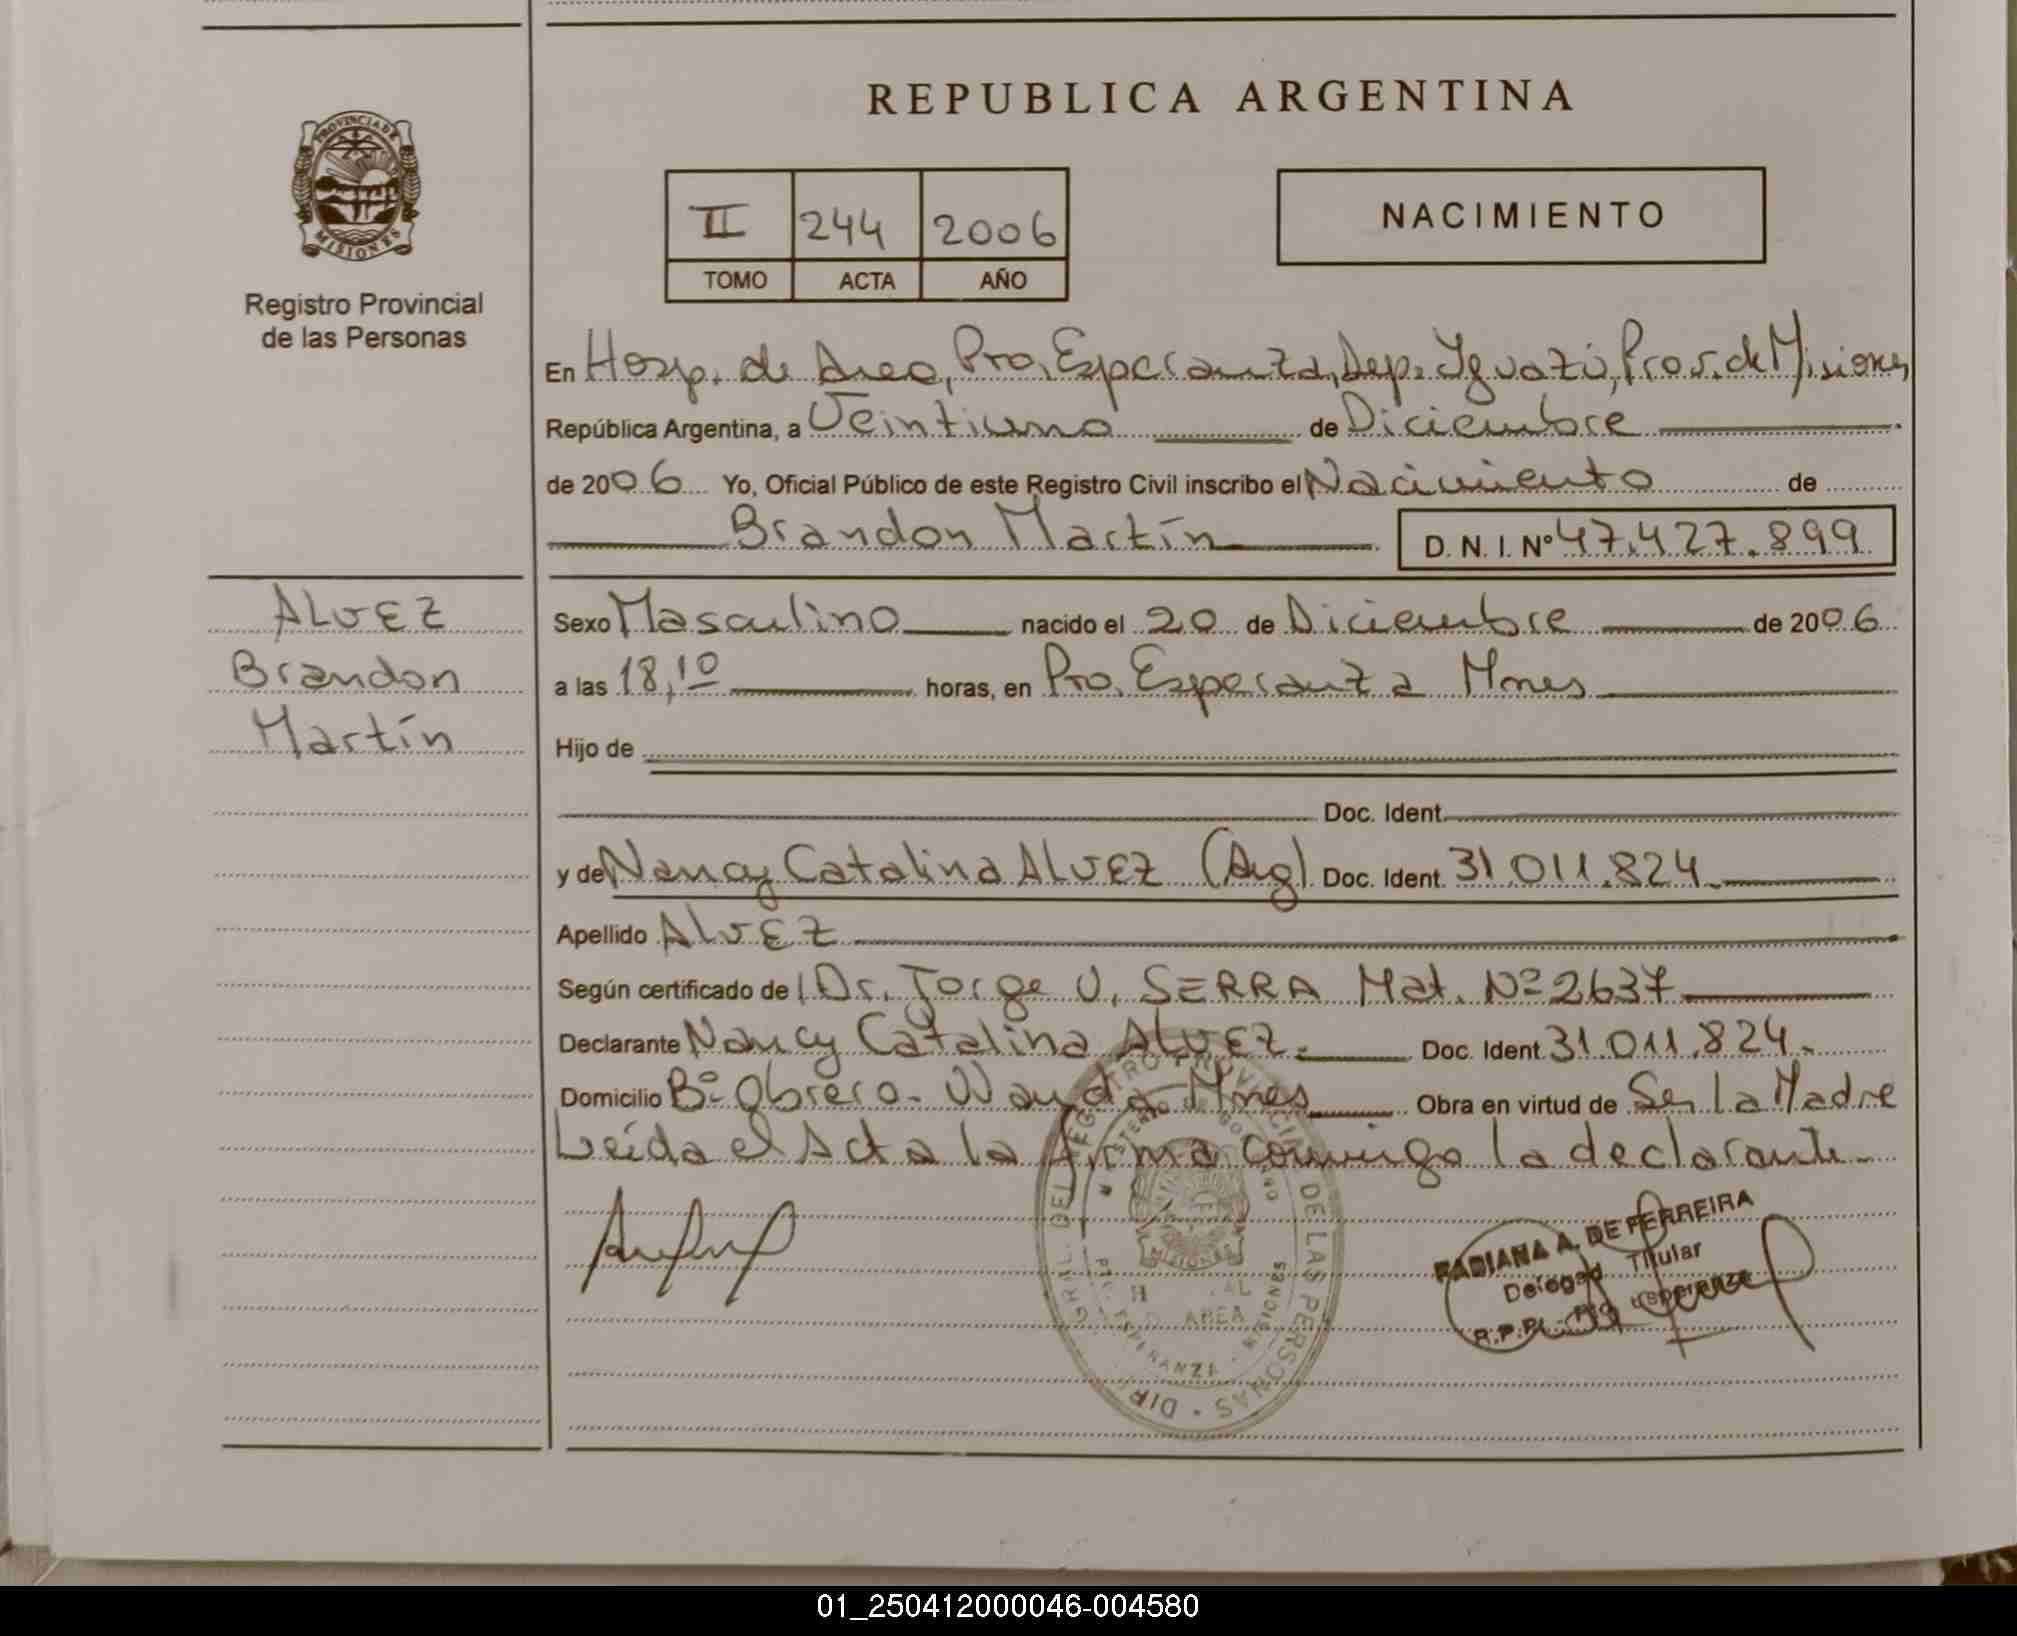 REPUBLICA ARGENTINA
PROVINCIA DE
MISIONES
Registro Provincial
de las Personas
II 244 2006
TOMO ACTA AÑO
NACIMIENTO
En Hosp. de Area, Pto. Esperanza, Dep. Iguazú, Prov. de Misiones
República Argentina, a Veintiuno de Diciembre
de 2006 Yo, Oficial Público de este Registro Civil inscribo el Nacimiento de
Brandon Martín D. N. I. Nº 47.427.899
ALVEZ
Brandon
Martín
Sexo Masculino nacido el 20 de Diciembre de 2006
a las 18,10 horas, en Pto. Esperanza Mnes
Hijo de
Doc. Ident.
y de Nancy Catalina ALVEZ (Arg) Doc. Ident. 31.011.824
Apellido ALVEZ
Según certificado de Dr. Jorge V. SERRA Mat. Nº 2637
Declarante Nancy Catalina ALVEZ. Doc. Ident. 31.011.824.
Domicilio Bº Obrero. Wanda Mnes Obra en virtud de Ser la Madre
Leída el Acta la firma conmigo la declarante
FABIANA A. DE FERREIRA
Titular
R.P.P.
DE LAS PERSONAS
AREA
ESPERANZA - MISIONES
01_250412000046-004580